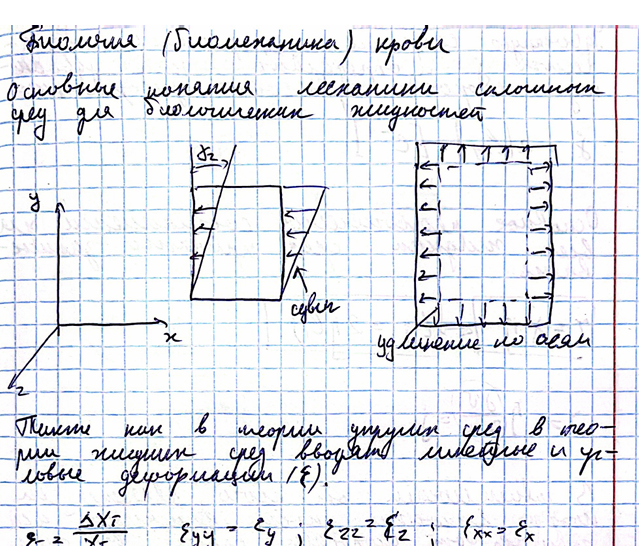 (биомеханика) крови
Основные понятия механики сплошных
сред для биологических жидкостей
γz
y
x
z
сдвиг
удлинение по осям
Также как в теории упругих сред в тео-
рии жидких сред вводят линейные и уг-
ловые деформации (ξ).
= ΔXт / Xт ξyy = ξy ; ξzz = ξz ; ξxx = ξx